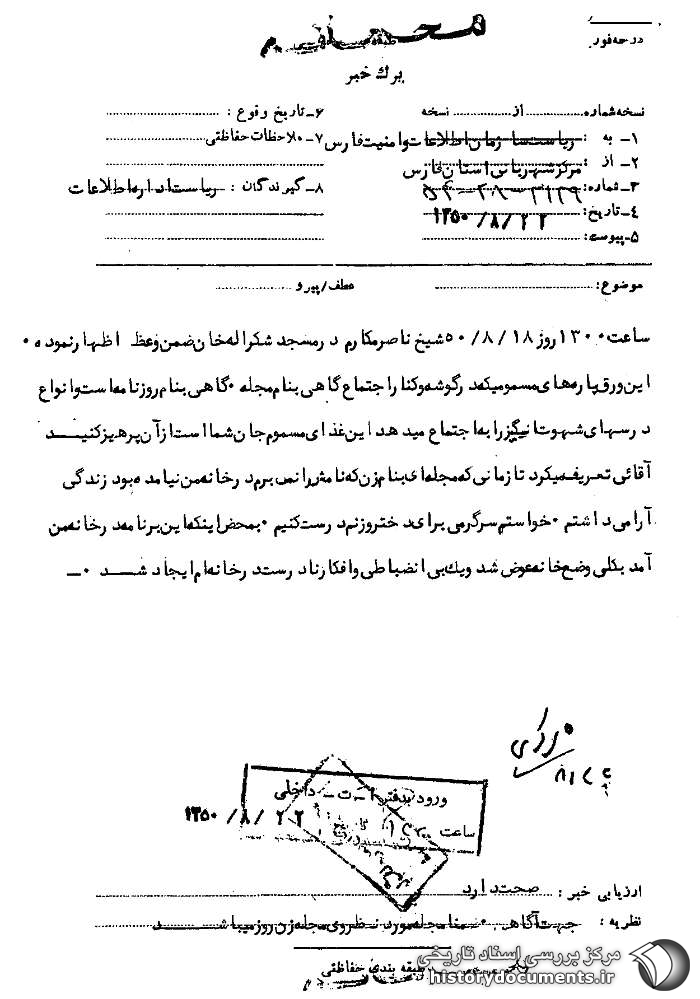 محرمانه
درجه فور
برگ خبر
نسخه شماره ............ از ............ نسخه
۱ـ به : ریاست سازمان اطلاعات و امنیت فارس
۲ـ از : مرکز شهربانی استان فارس
۳ـ شماره:
۴ـ تاریخ: ۱۳۵۰/۸/۲۲
۵ـ پیوست:
۶ـ تاریخ وقوع :
۷ـ ملاحظات حفاظتی:
۸ـ گیرندگان : ریاست اداره اطلاعات
موضوع: عطف/پیرو
ساعت ۱۳۰۰ روز ۵۰/۸/۱۸ شیخ ناصر مکارم در مسجد شکراله خان ضمن وعظ اظهار نموده ۰
این ورق پاره های مسموم که در گوشه و کنار اجتماع گاهی بنام مجله ۰ گاهی بنام روزنامه است و انواع
درسهای شهوت انگیز را به اجتماع میدهد این غذای مسموم جان شما است از آن پرهیز کنید
آقائی تعریف میکرد تا زمانی که مجله ای بنام زن که نامش را نمی برم در خانه من نیامده بود زندگی
آرامی داشتم ۰ خواستم سرگرمی برای دختر و زنم درست کنیم ۰ بمحض اینکه این برنامه در خانه من
آمد بکلی وضع خانه عوض شد و یک بی انضباطی و افکار نادرست در خانه ام ایجاد شد ۰ ـ
ورود بدفتر ا ـ ت ـ داخلی
۱۳۵۰/۸/۲۲
ساعت
ارزیابی خبر : صحت دارد
نظریه : جهت آگاهی ۰ ضمنا مجله مورد نظر وی مجله زن روز میباشد
طبقه بندی حفاظتی
مرکز بررسی اسناد تاریخی
historydocuments.ir